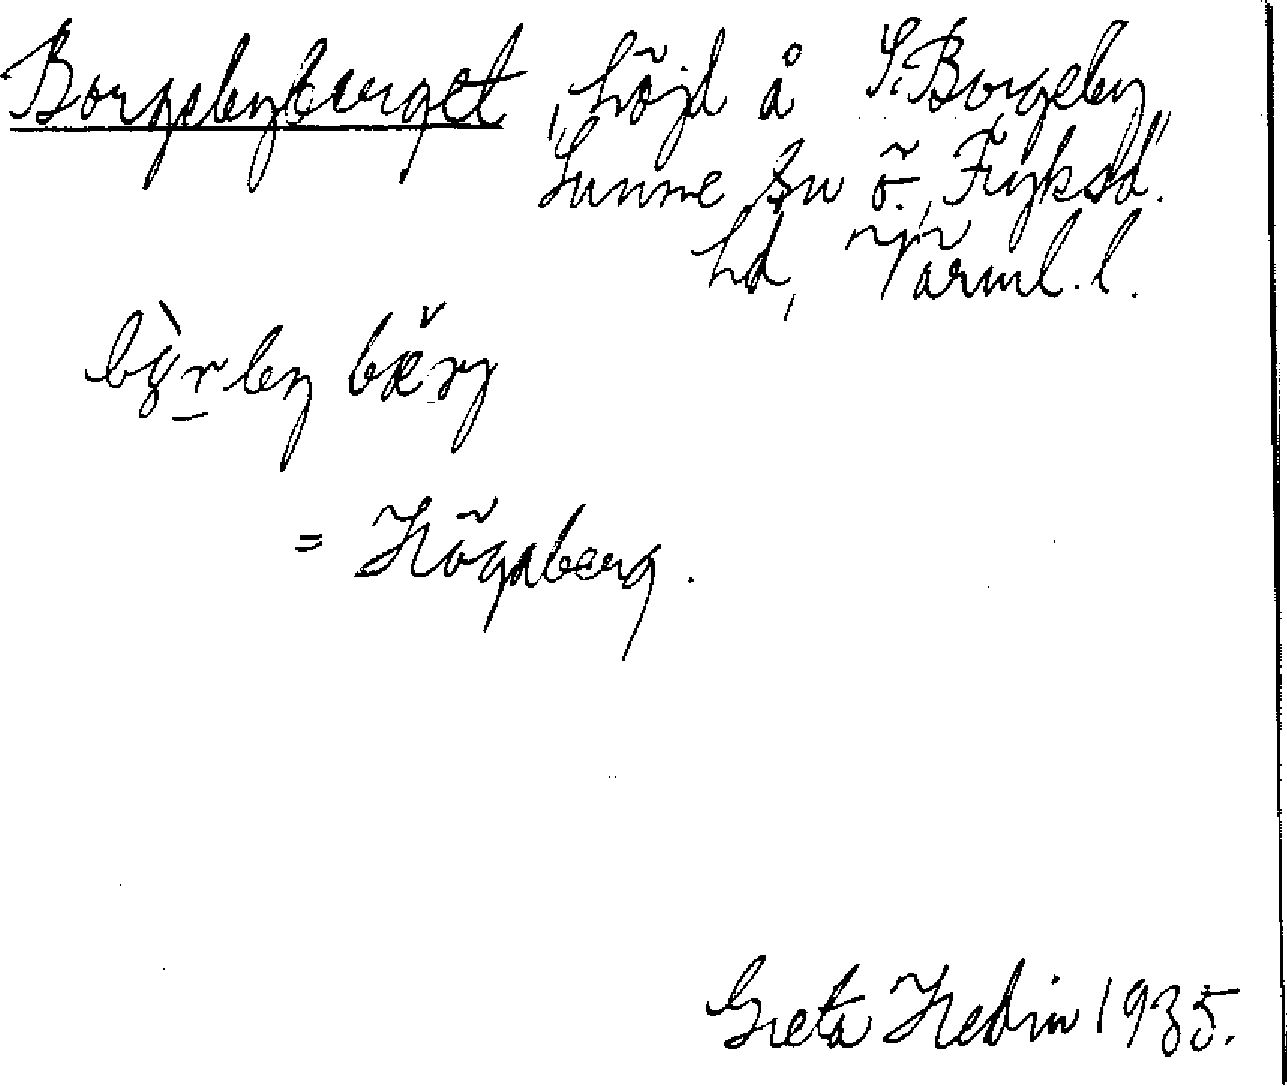 Borgebyberget, höjd å S. Borgeby,
Sunne sn Ö. Fryksd.
hd, Värml. l.
bỳrby bærg
= Högaberg.
Greta Hedin 1935.